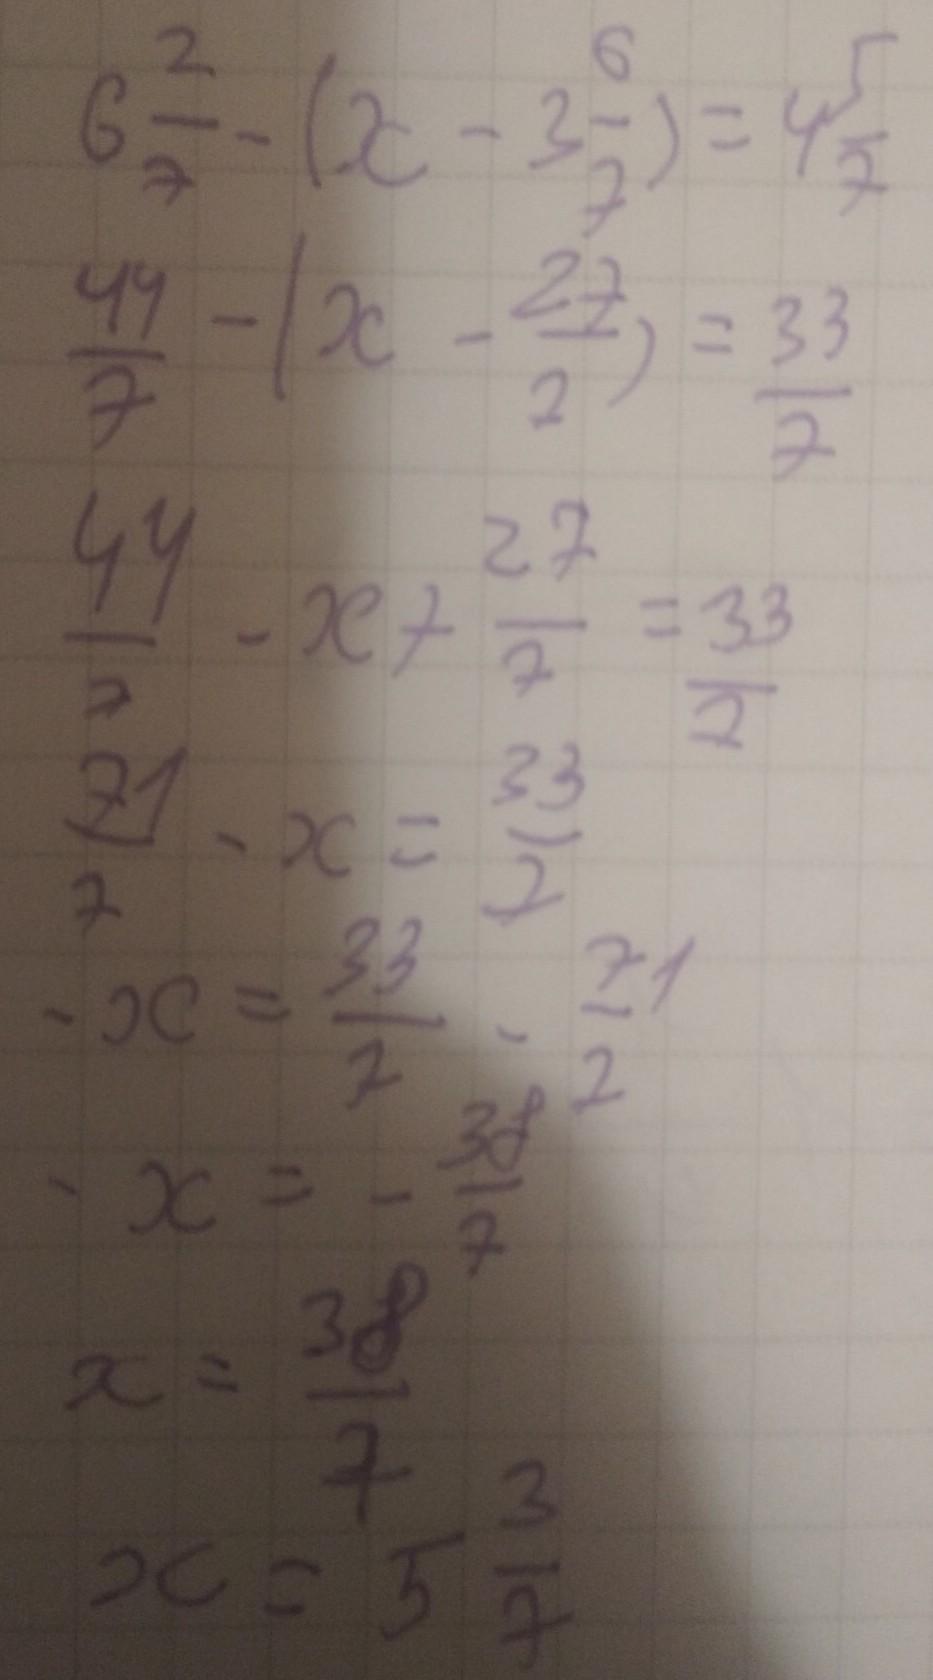 6 2/7 - (x - 3 6/7) = 4 5/7
44/7 - (x - 27/7) = 33/7
44/7 - x + 27/7 = 33/7
71/7 - x = 33/7
- x = 33/7 - 71/7
- x = - 38/7
x = 38/7
x = 5 3/7